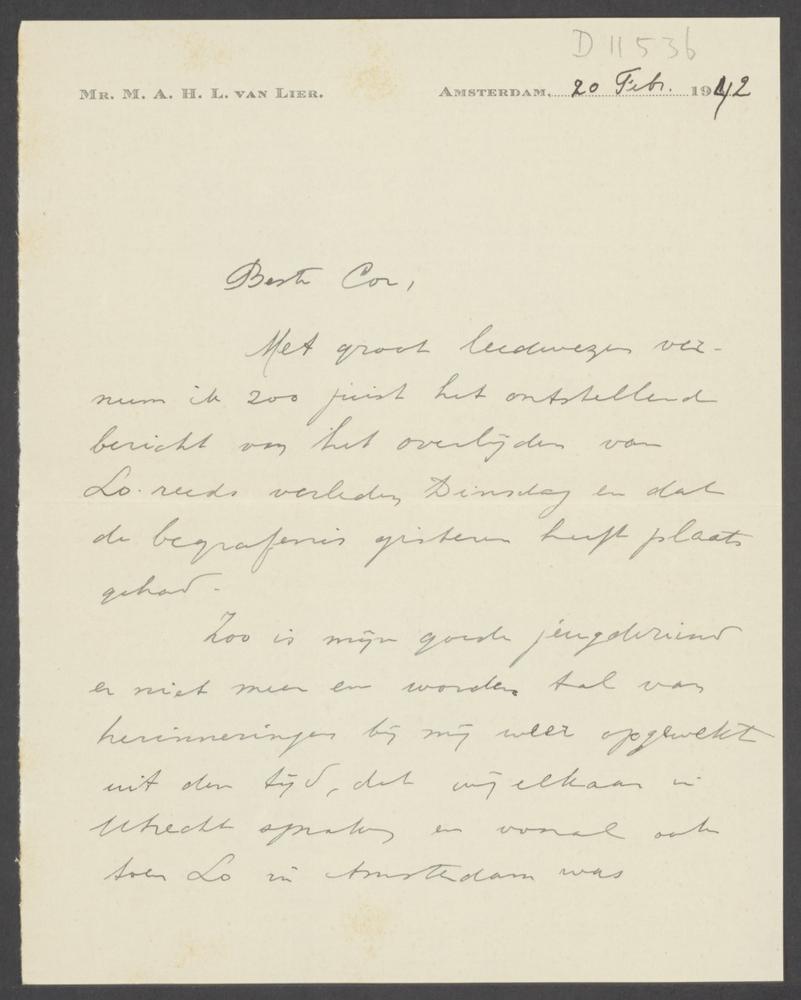 D 11536
MR. M. A. H. L. VAN LIER. AMSTERDAM, 20 Febr. 1942
Beste Cor,
Met groot leedwezen ver-
num ik zoo juist het ontstellend
bericht van het overlijden van
Lo. reeds verleden Dinsdag en dat
de begrafenis gisteren heeft plaats
gehad.
Zoo is mijn goede jeugdvriend
er niet meer en worden tal van
herinneringen bij mij weer opgewekt
uit den tijd, dat wij elkaar in
Utrecht spraken en vooral ook
toen Lo in Amsterdam was